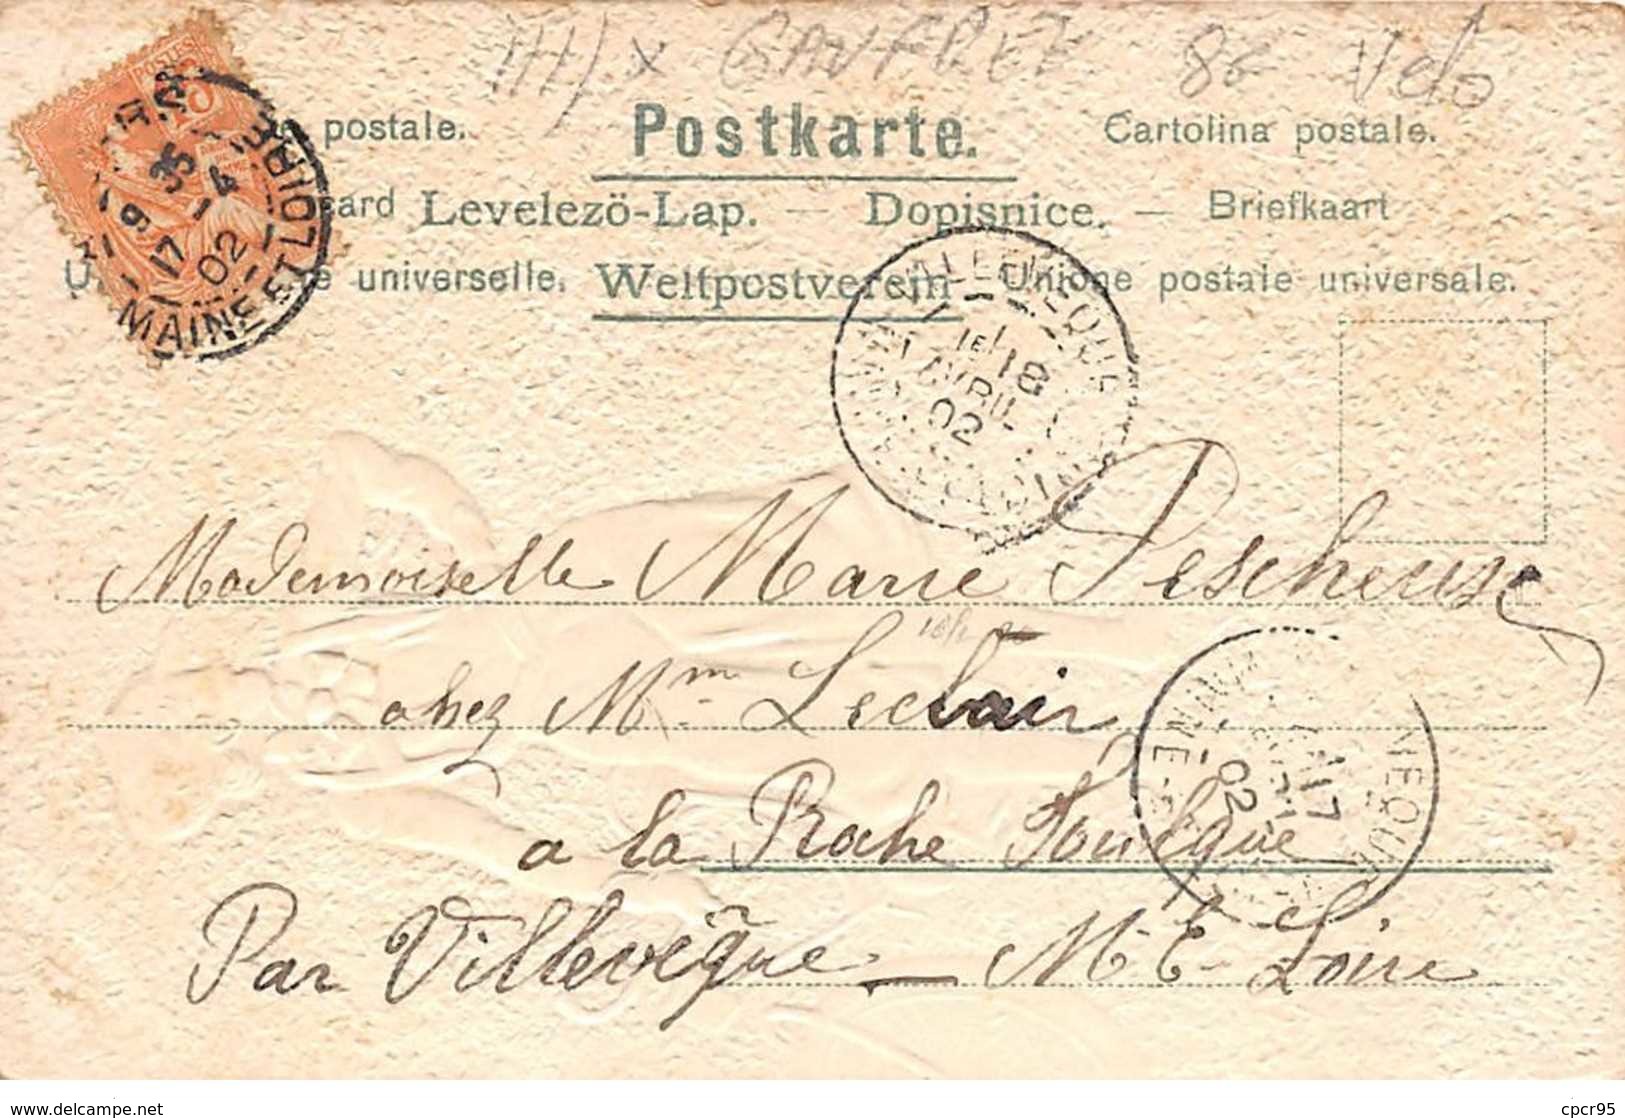 GAUFREE 86 Velo
postale. Postkarte. Cartolina postale.
card Levelezö-Lap. — Dopisnice. — Briefkaart
U e universelle. Weltpostverein Unione postale universale.
9 35
17 - 4
02
MAINE ET LOIRE
VILLEVEQUE
18
AVRIL
02
Mademoiselle Marie Pescheuse
chez Mme Leclair
a la Roche Foulque
Par Villevêque — M E Loire
17
02
delcampe.net
cpcr95